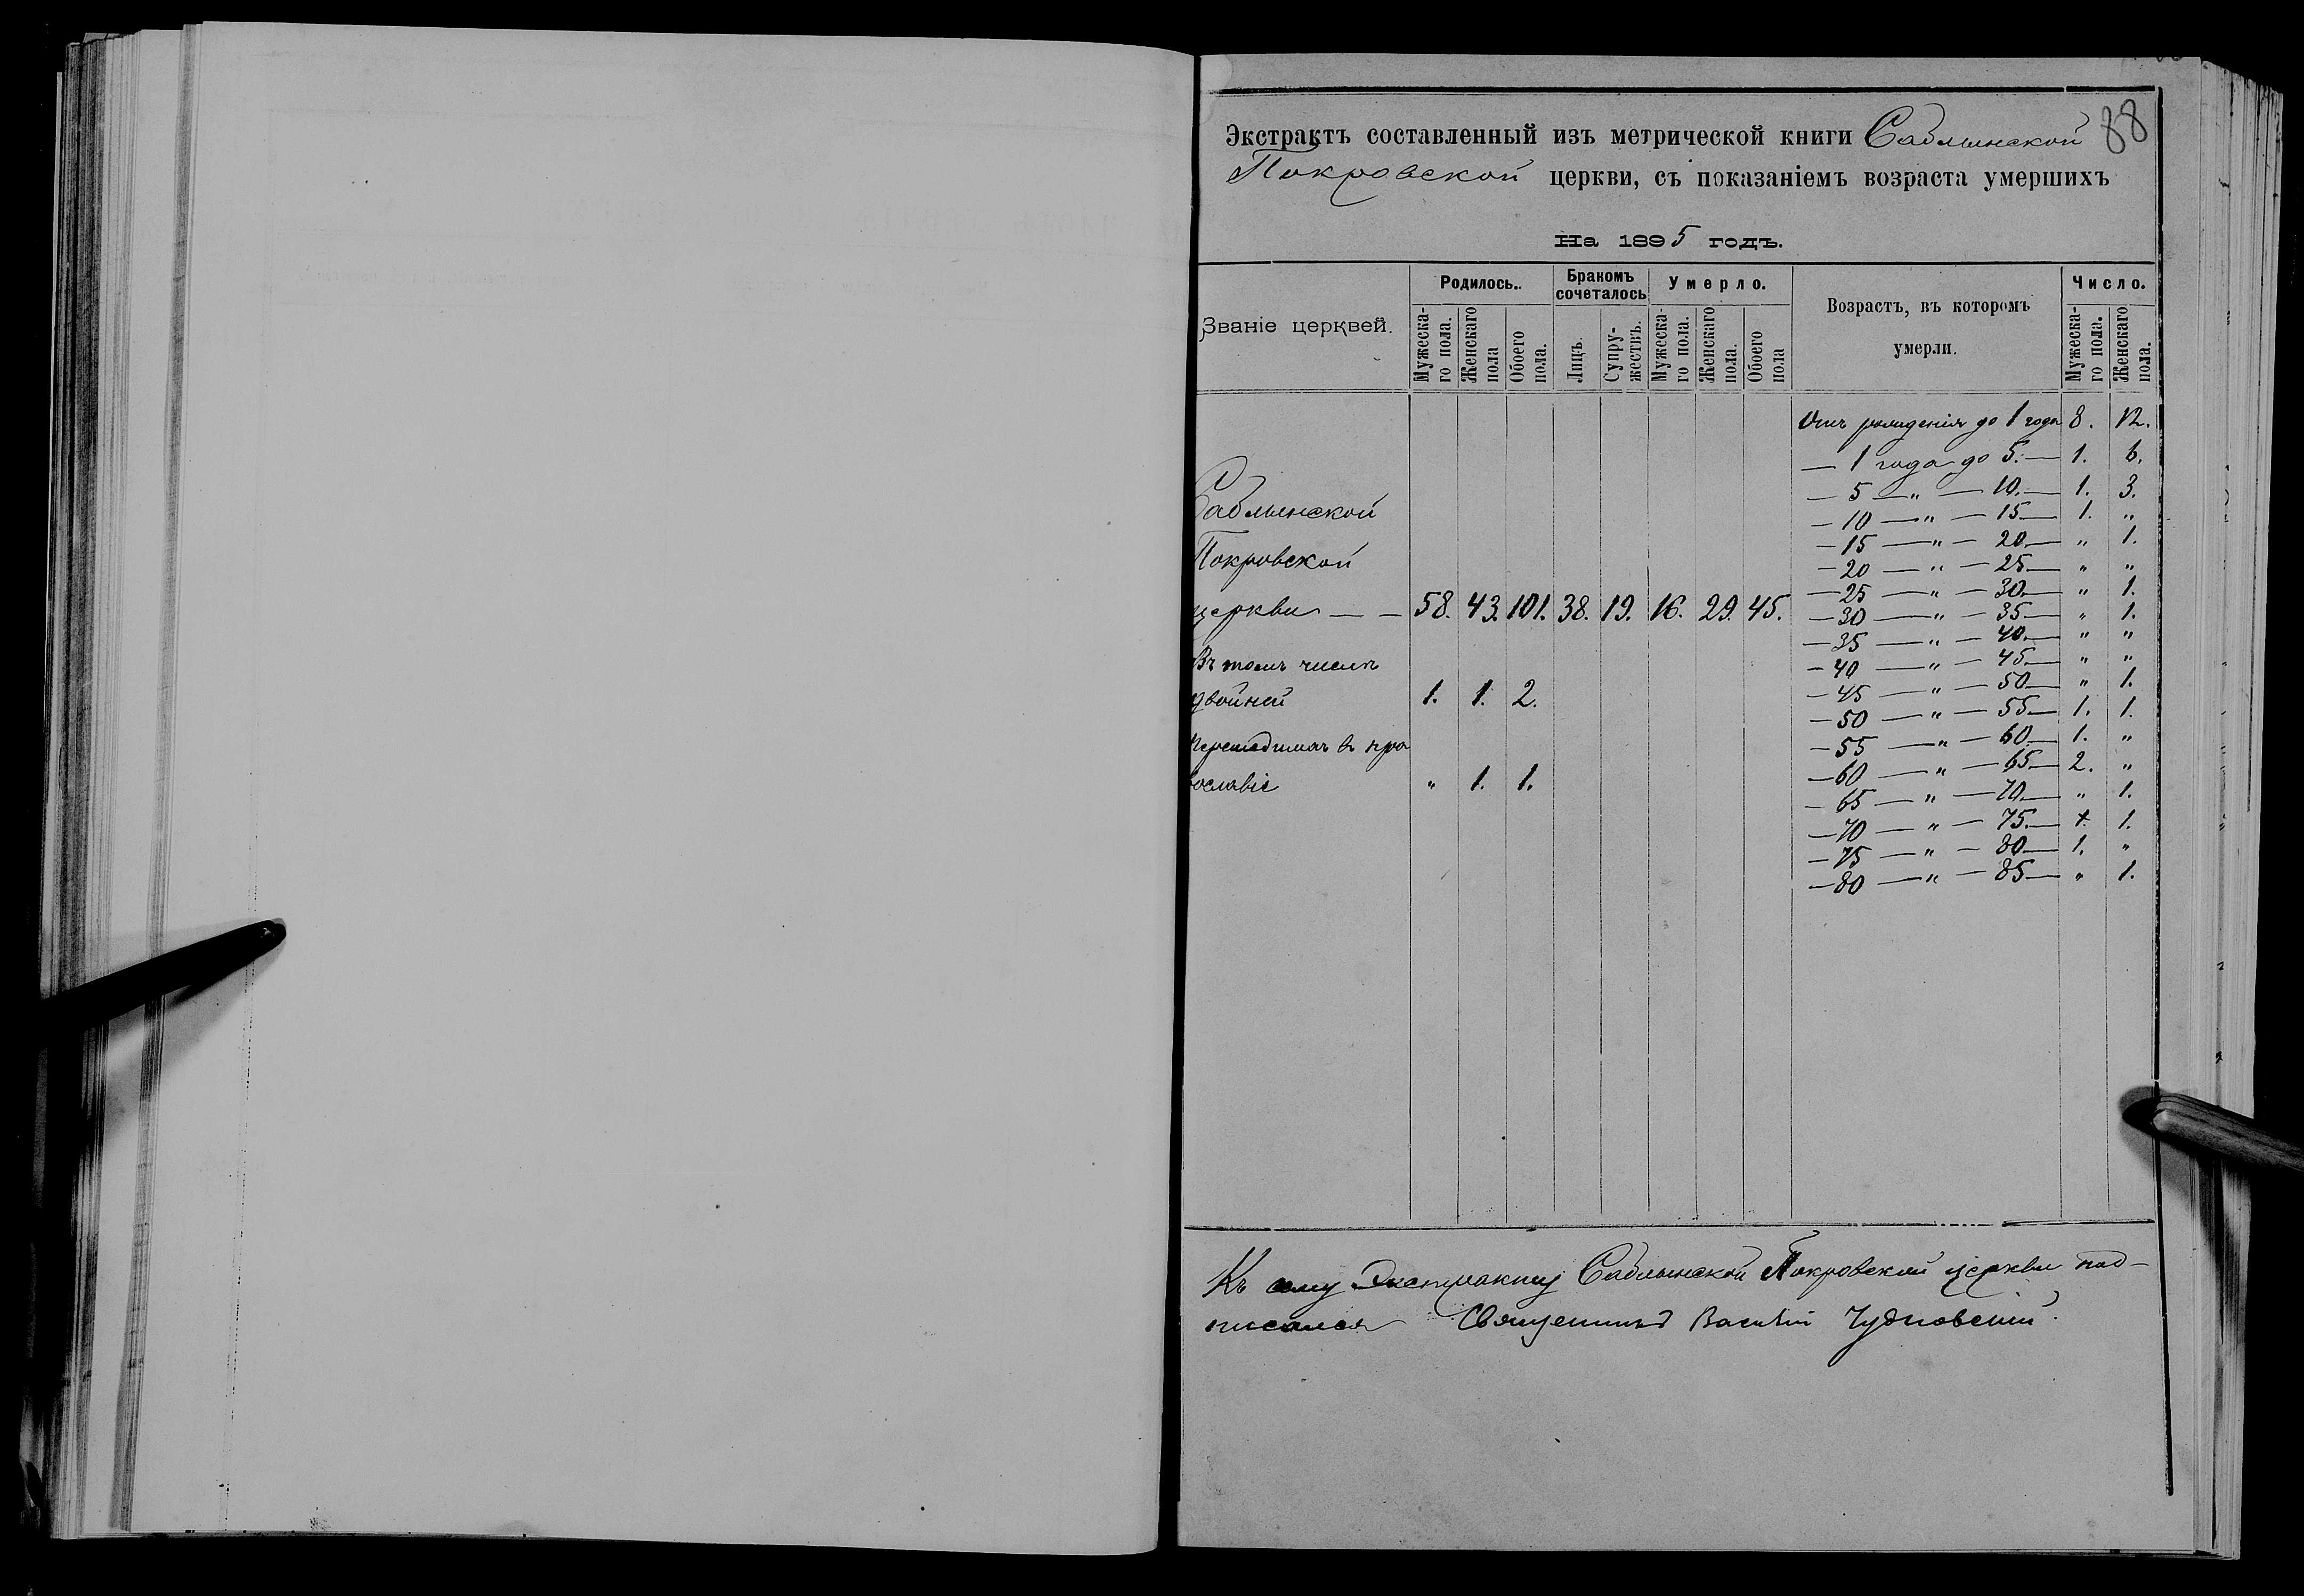 88
Экстрактъ составленный изъ метрической книги Саблынской
Покровской церкви, съ показаніемъ возраста умершихъ
На 1895 годъ.
Званіе церквей. Родилось.. Бракомъ сочеталось Умерло. Возрастъ, въ которомъ умерли. Число.
Мужеска-го пола. Женскаго пола Обоего пола. Лицъ. Супру-жествъ. Мужеска-го пола. Женскаго пола. Обоего пола Мужеска-го пола. Женскаго пола.
Саблынской
Покровской
церкви — — 58. 43. 101. 38. 19. 16. 29. 45.
Въ томъ числѣ
двойней 1. 1. 2.
Перешедшихъ въ пра
вославіе „ 1. 1.
Отъ рожденія до 1 года 8. 12.
— 1 года до 5. — 1. 6.
— 5 — „ — 10. — 1. 3.
— 10 — „ — 15 — 1. „
— 15 — „ — 20. — „ 1.
— 20 — „ — 25 — „ „
— 25 — „ — 30. — „ 1.
— 30 — „ — 35 — „ 1.
— 35 — „ — 40. — „ „
— 40 — „ — 45 — „ „
— 45 — „ — 50 — „ 1.
— 50 — „ — 55 — 1. 1.
— 55 — „ — 60. — 1. „
— 60 — „ — 65 — 2. „
— 65 — „ — 70 — „ 1.
— 70 — „ — 75. — 1.
— 75 — „ — 80 — 1. „
— 80 — „ — 85 — „ 1.
Къ сему Экстракту Саблынской Покровской церкви под-
писался Священникъ Василій Чудновскій.